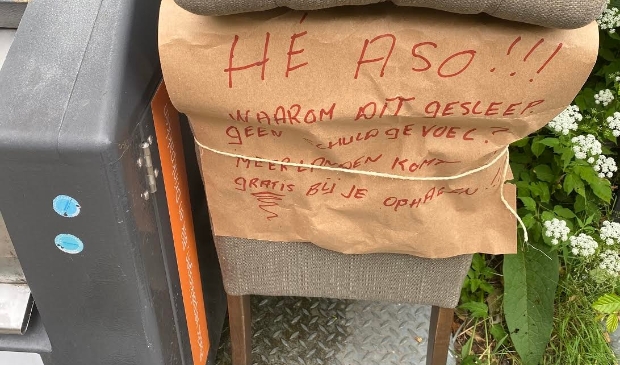 HÉ ASO!!!
WAAROM DIT GESLEEP
GEEN SCHULDGEVOEL?
MEERLANDEN KOMT
GRATIS BIJ JE OPHALEN!!